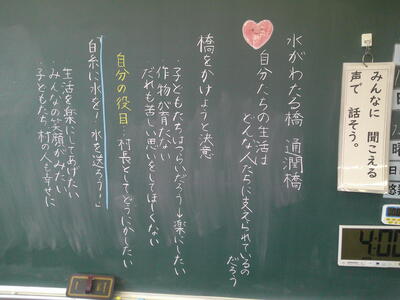 水がわたる橋 通潤橋
自分たちの生活は
どんな人たちに支えられているの
だろう
橋をかけようと決意
・子どもたちはつらいだろう→楽にしたい
作物が育たない
だれも苦しい思いをしてほしくない
自分の役目…村長としてどうにかしたい
白糸に水を!水を送ろう!」
生活を楽にしてあげたい
・みんなの笑顔がみたい
・子どもたち、村の人も幸せに
みんなに 聞こえる
声で 話そう。
4:00